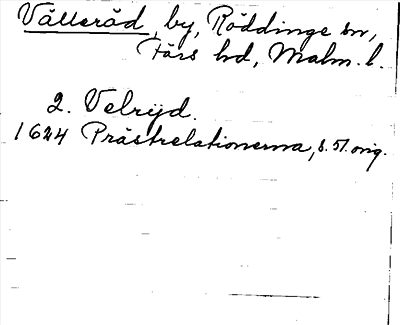 Välleröd, by, Röddinge sn,
Färs hd, Malm. l.
2. Velryd.
1624 Prästrelationerna, s. 51. orig.